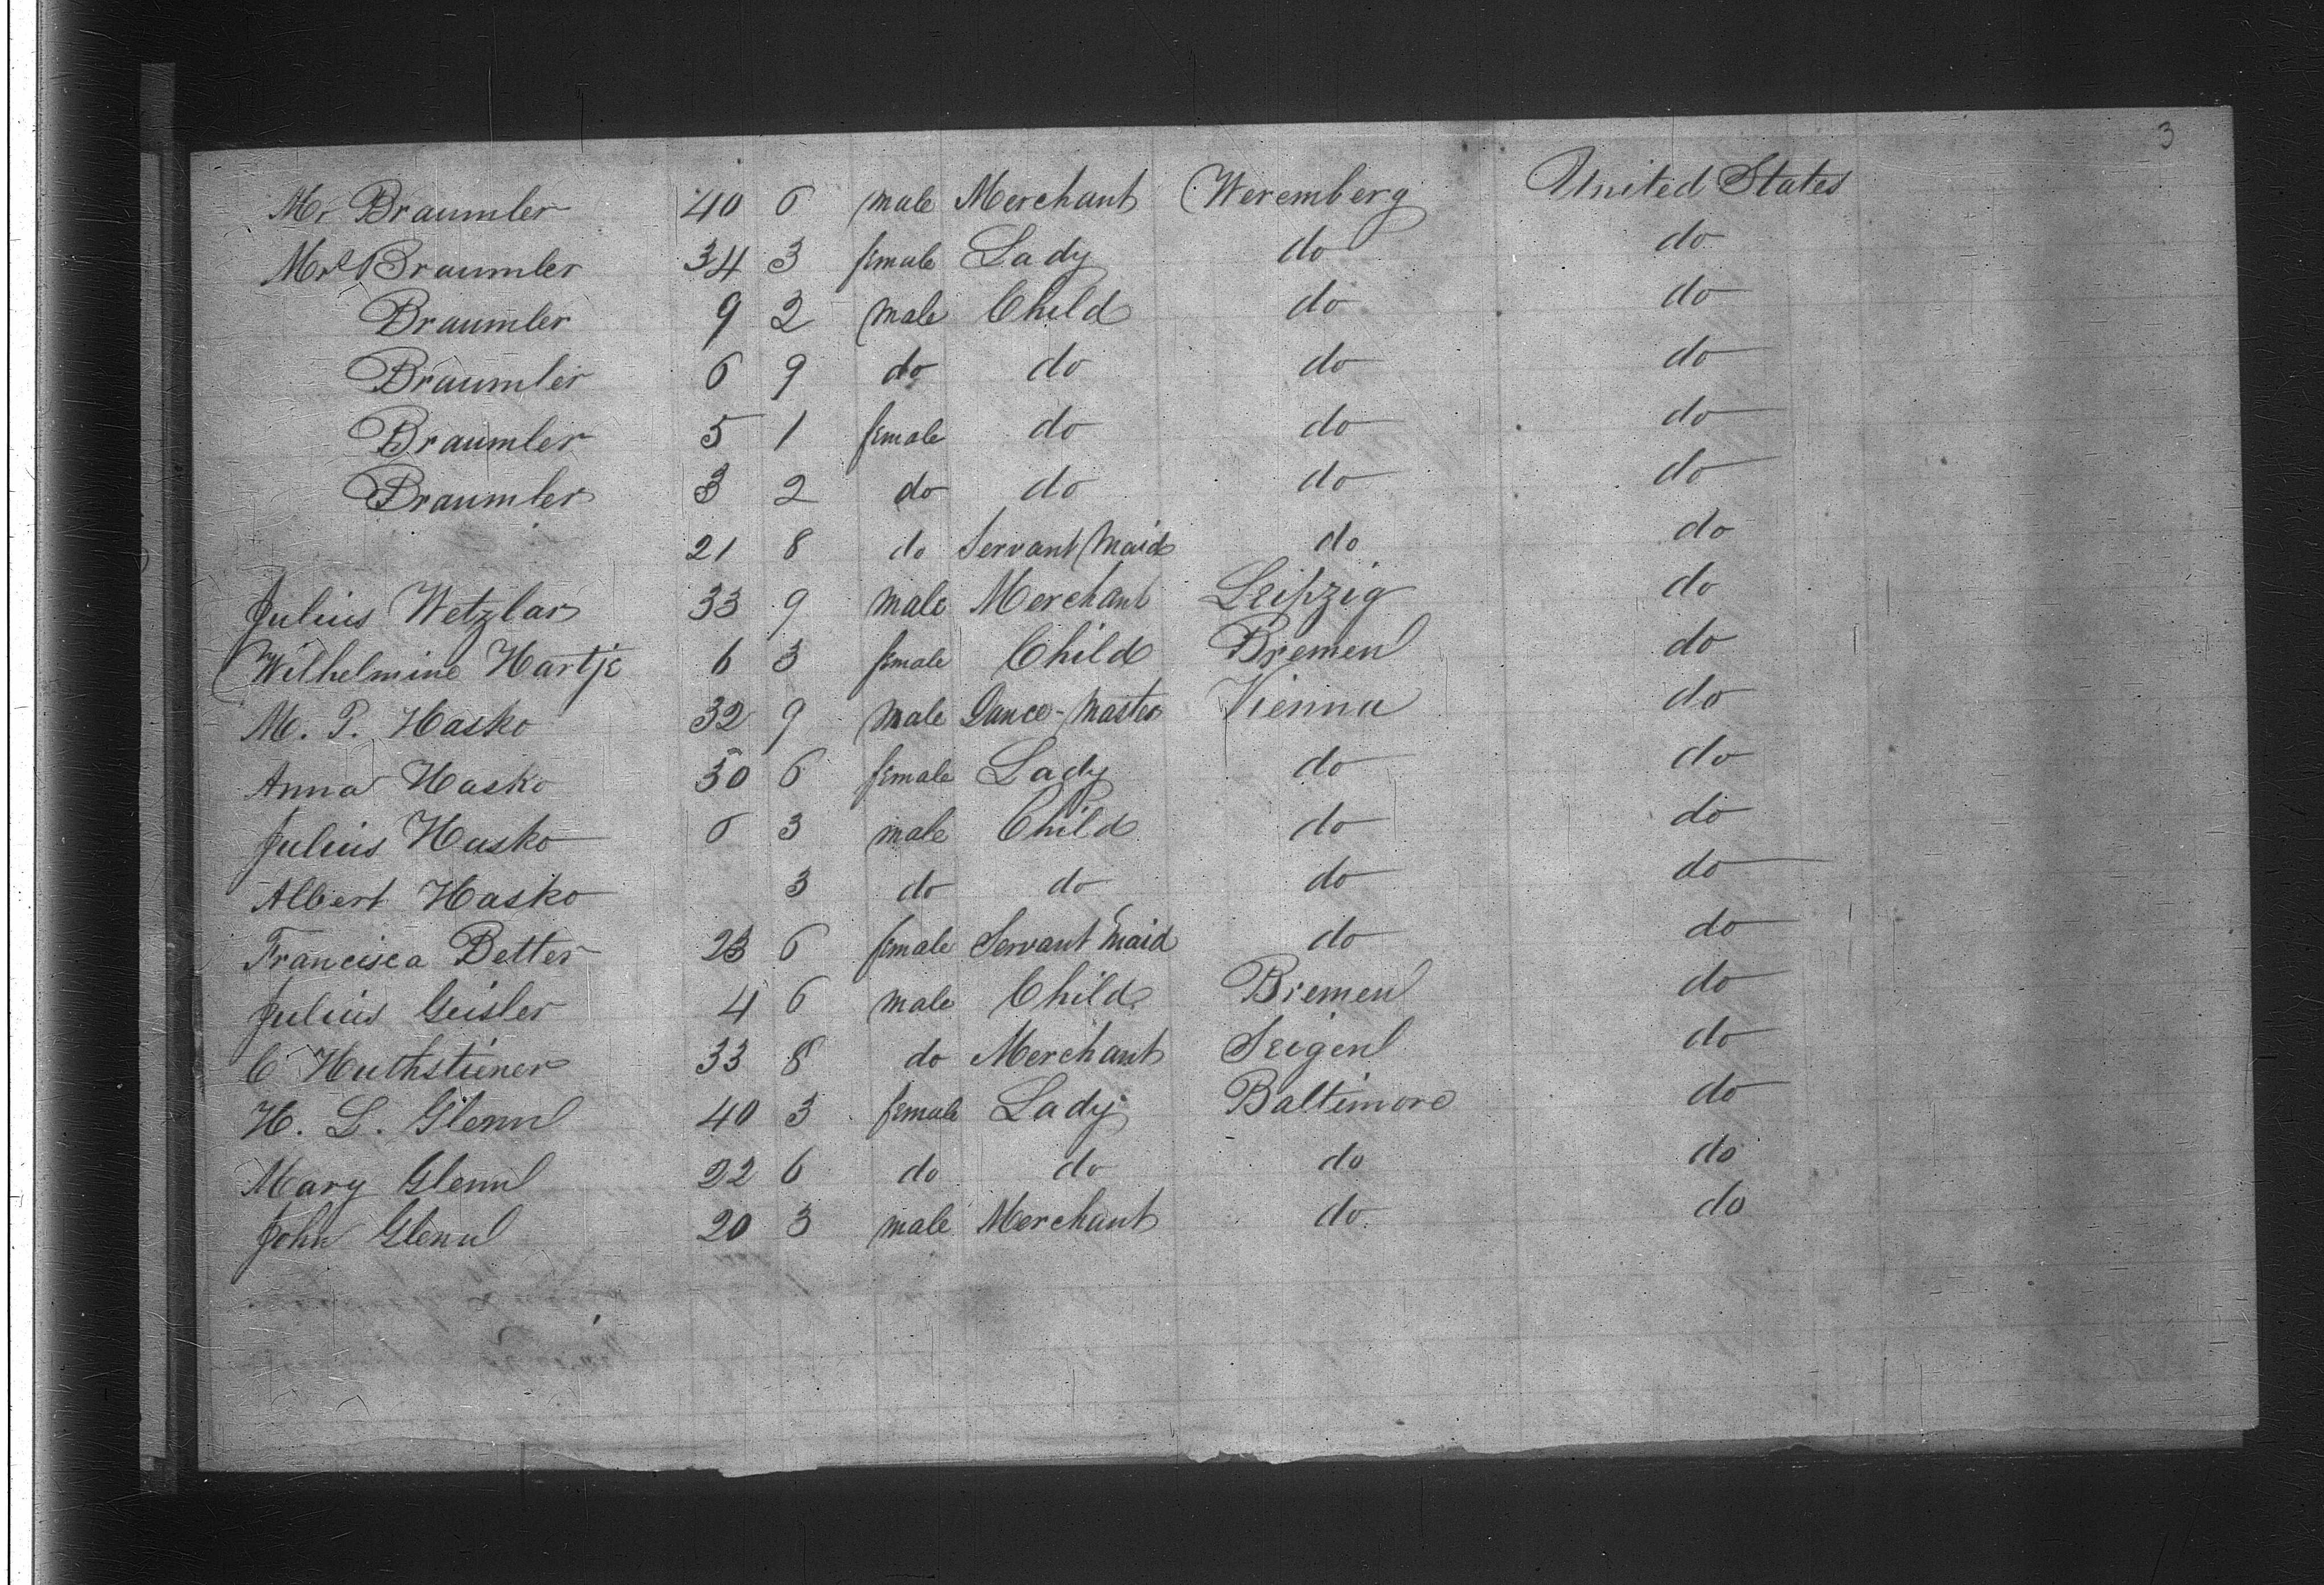 3
Mr Braumler 40 6 male Merchant Weremberg United States
Mrs Braumler 34 3 female Lady do do
Braumler 9 2 male Child do do
Braumler 6 9 do do do do
Braumler 5 1 female do do do
Braumler 3 2 do do do do
21 8 do Servant Maid do do
Julius Wetzlar 33 9 male Merchant Leipzig do
Wilhelmine Hartje 6 3 female Child Bremen do
M. P. Hasko 32 9 male Dance-Master Vienna do
Anna Hasko 30 6 female Lady do do
Julius Hasko 6 3 male Child do do
Albert Hasko 3 do do do do
Francisca Better 23 6 female Servant Maid do do
Julius Geisler 4 6 male Child Bremen do
C Huthsteiner 33 8 do Merchant Seigen do
H. L. Glenn 40 3 female Lady Baltimore do
Mary Glenn 22 6 do do do do
John Glenn 20 3 male Merchant do do